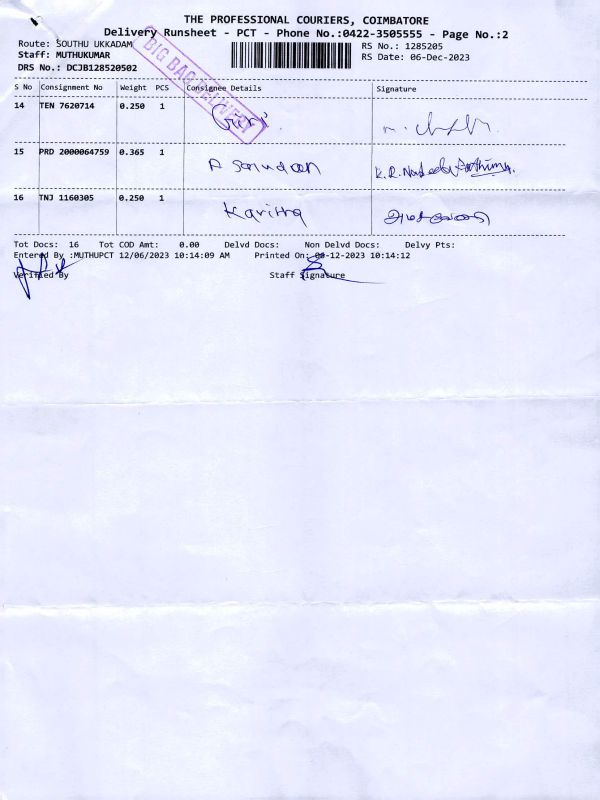 THE PROFESSIONAL COURIERS, COIMBATORE
Delivery Runsheet - PCT - Phone No.:0422-3505555 - Page No.:2
Route: SOUTHU UKKADAM
RS No.: 1285205
Staff: MUTHUKUMAR
RS Date: 06-Dec-2023
DRS No.: DCJB128520502
BIG BAG DELIVERY
S No Consignment No Weight PCS Consignee Details Signature
14 TEN 7620714 0.250 1
15 PRD 2000064759 0.365 1 K.R.
16 TNJ 1160305 0.250 1 Kavitha
Tot Docs: 16 Tot COD Amt: 0.00 Delvd Docs: Non Delvd Docs: Delvy Pts:
Entered By :MUTHUPCT 12/06/2023 10:14:09 AM Printed On: 06-12-2023 10:14:12
Verified By Staff Signature